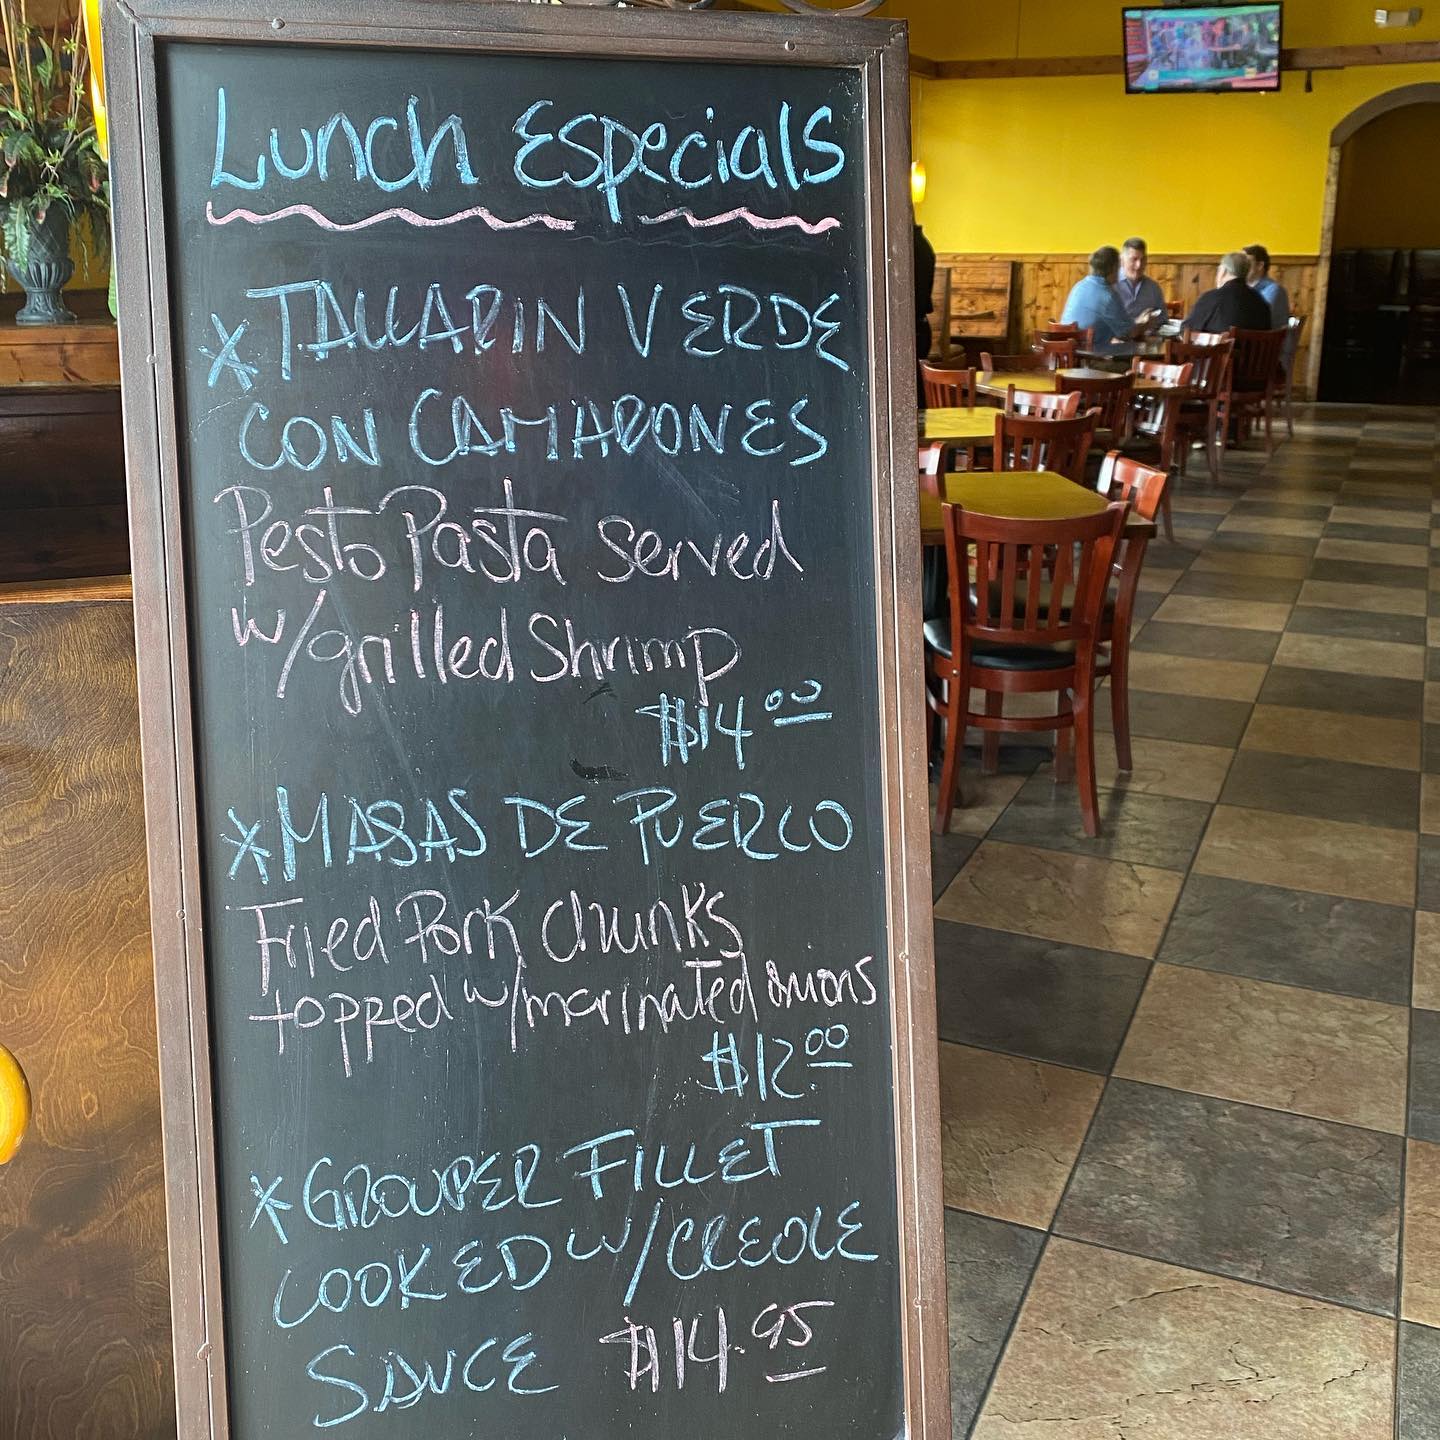 Lunch Especials
* TALLARIN VERDE
CON CAMARONES
Pesto Pasta served
w/grilled Shrimp
$14.00
* MASAS DE PUERCO
Fried Pork Chunks
topped w/marinated onions
$12.00
* GROUPER FILLET
COOKED W/CREOLE
SAUCE $14.95